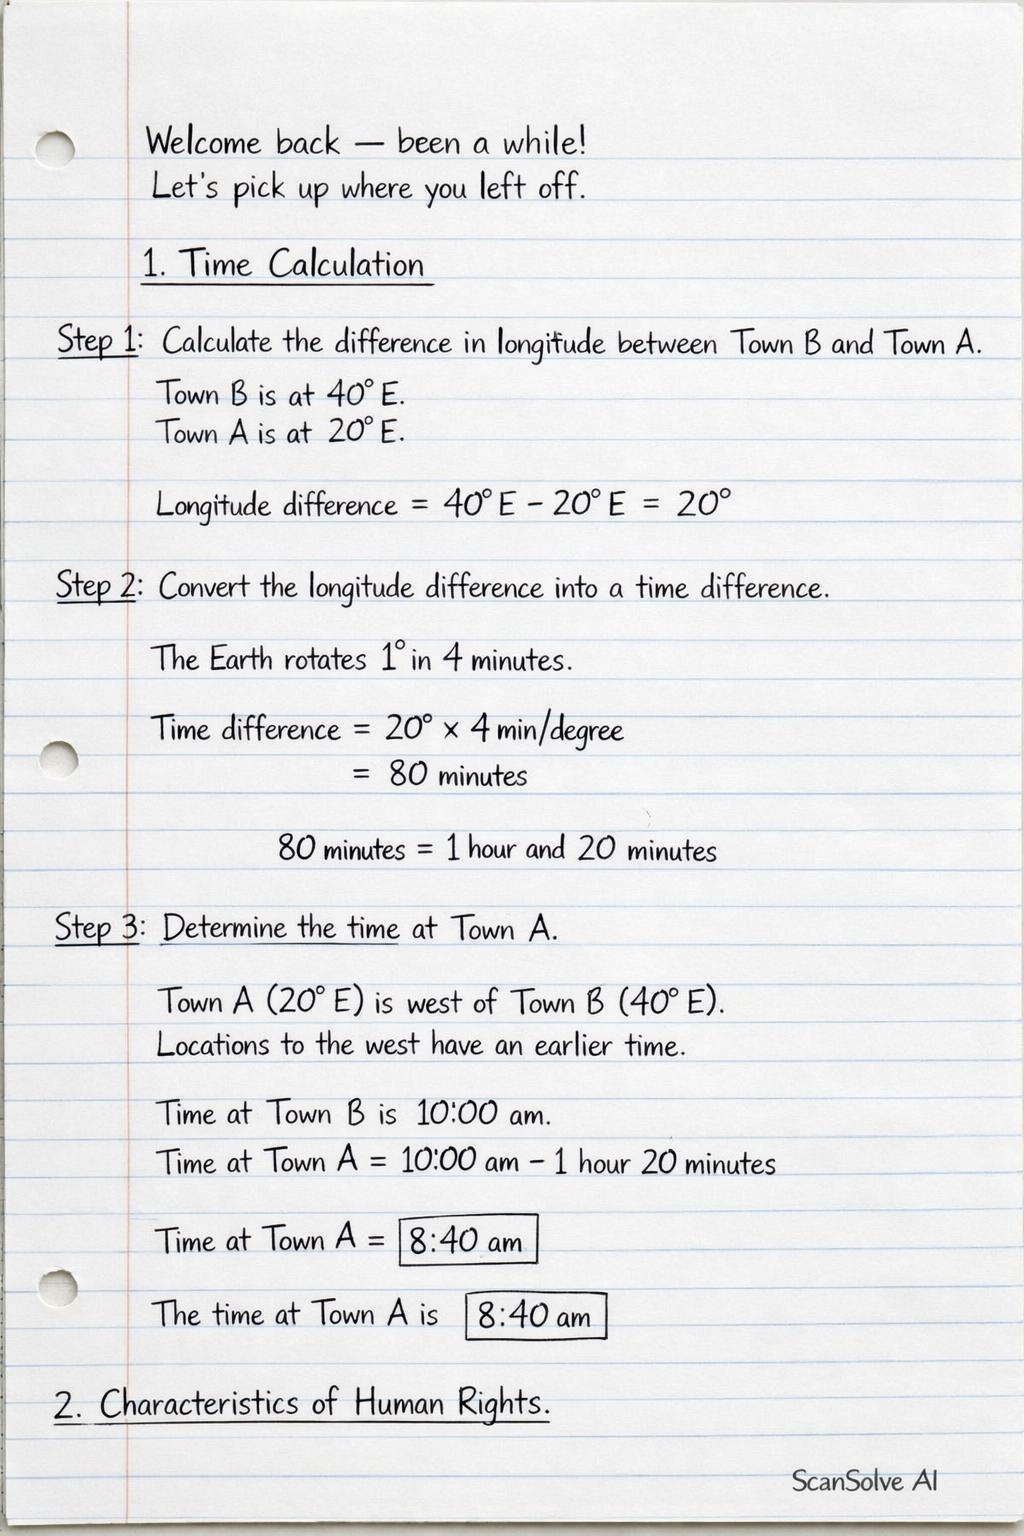 Welcome back — been a while!
Let's pick up where you left off.
1. Time Calculation
Step 1: Calculate the difference in longitude between Town B and Town A.
Town B is at 40° E.
Town A is at 20° E.
Longitude difference = 40° E – 20° E = 20°
Step 2: Convert the longitude difference into a time difference.
The Earth rotates 1° in 4 minutes.
Time difference = 20° × 4 min/degree
= 80 minutes
80 minutes = 1 hour and 20 minutes
Step 3: Determine the time at Town A.
Town A (20° E) is west of Town B (40° E).
Locations to the west have an earlier time.
Time at Town B is 10:00 am.
Time at Town A = 10:00 am – 1 hour 20 minutes
Time at Town A = 8:40 am
The time at Town A is 8:40 am
2. Characteristics of Human Rights.
ScanSolve AI